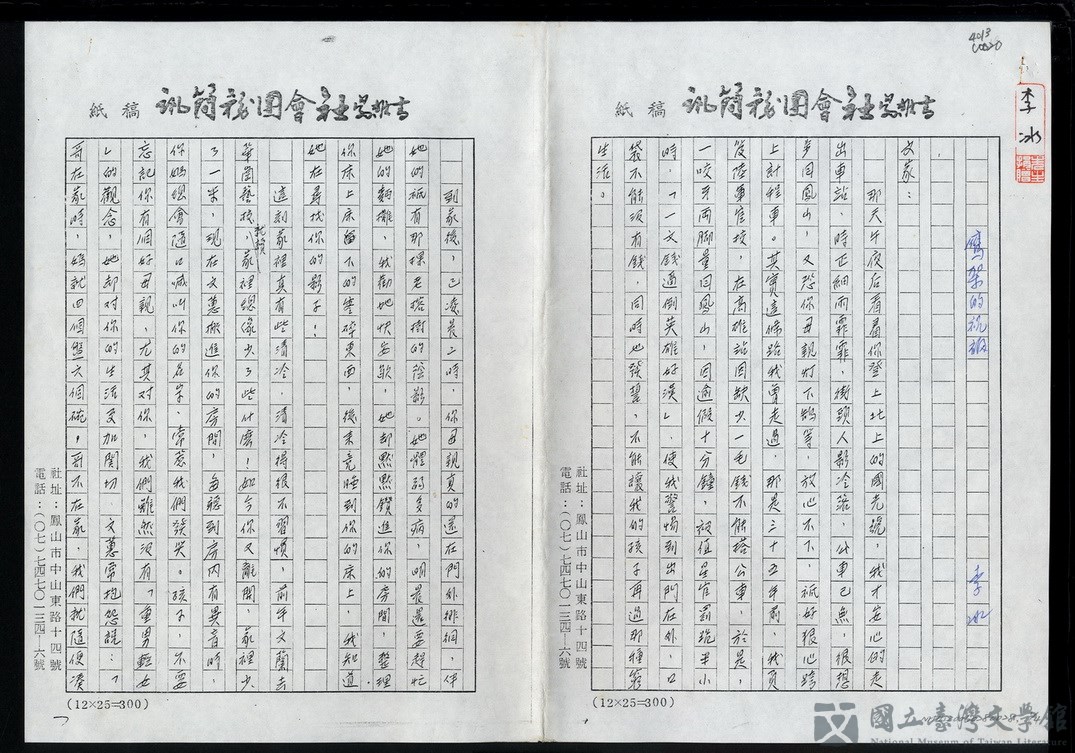 李冰
鷹架的祝福
李冰
文豪：
那天午夜后看著你登上北上的國光號，我才安心的走
出車站，時正細雨霏霏，街頭人影冷落，公車已無，很想
多回鳳山，又恐你母親灯下鵠等，放心不下，祇好狠心跨
上計程車。其實這條路我曾走過，那是三十五年前，我頁
後陸軍官校，在高雄站因缺少一毛錢不能搭公車，於是，
一咬牙兩脚量回鳳山，因逾假十分鐘，被值星官罰跪半小
時，「一文錢逼倒英雄好漢」，便我警惕到出門在外，口
袋不能沒有錢，同時也發誓，不能讓我的孩子再過那種窮
生活。
(12×25=300)
社址：鳳山市中山東路十四號
電話：(○七)七四七○一三四-六號
紙稿
到家後，已凌晨二時，你母親真的還在門外徘徊，伴
她的祇有那棵老榕樹的陰影。她體弱多病，明晨還要趕忙
她的麵攤，我勸她快安歇，她卻默默鑽進你的房間，整理
你床上床留下的零碎東西，後來竟睡到你的床上，我知道，
她在尋找你的影子！
這刻家裡真有些清冷，清冷得很不習慣，前年文蘭去
華岡藝校就讀，家裡總像少了些什麼！如今你又離開，家裡少
了一半，現在文蕙搬進你的房間，每聽到房內有異音時，
你媽總會隨口喊叫你的名字，常惹我們發笑。孩子，不要
忘記你有個好母親，尤其對你，我們雖然沒有「重男輕女
」的觀念，她却對你的生活交加関切，文蕙常抱怨說：「
哥在家時，媽就四個盤六個碗，哥不在家，我們就隨便湊
(12×25=300)
社址：鳳山市中山東路十四號
電話：(○七)七四七○一三四-六號
紙稿
國立臺灣文學館
National Museum of Taiwan Literature